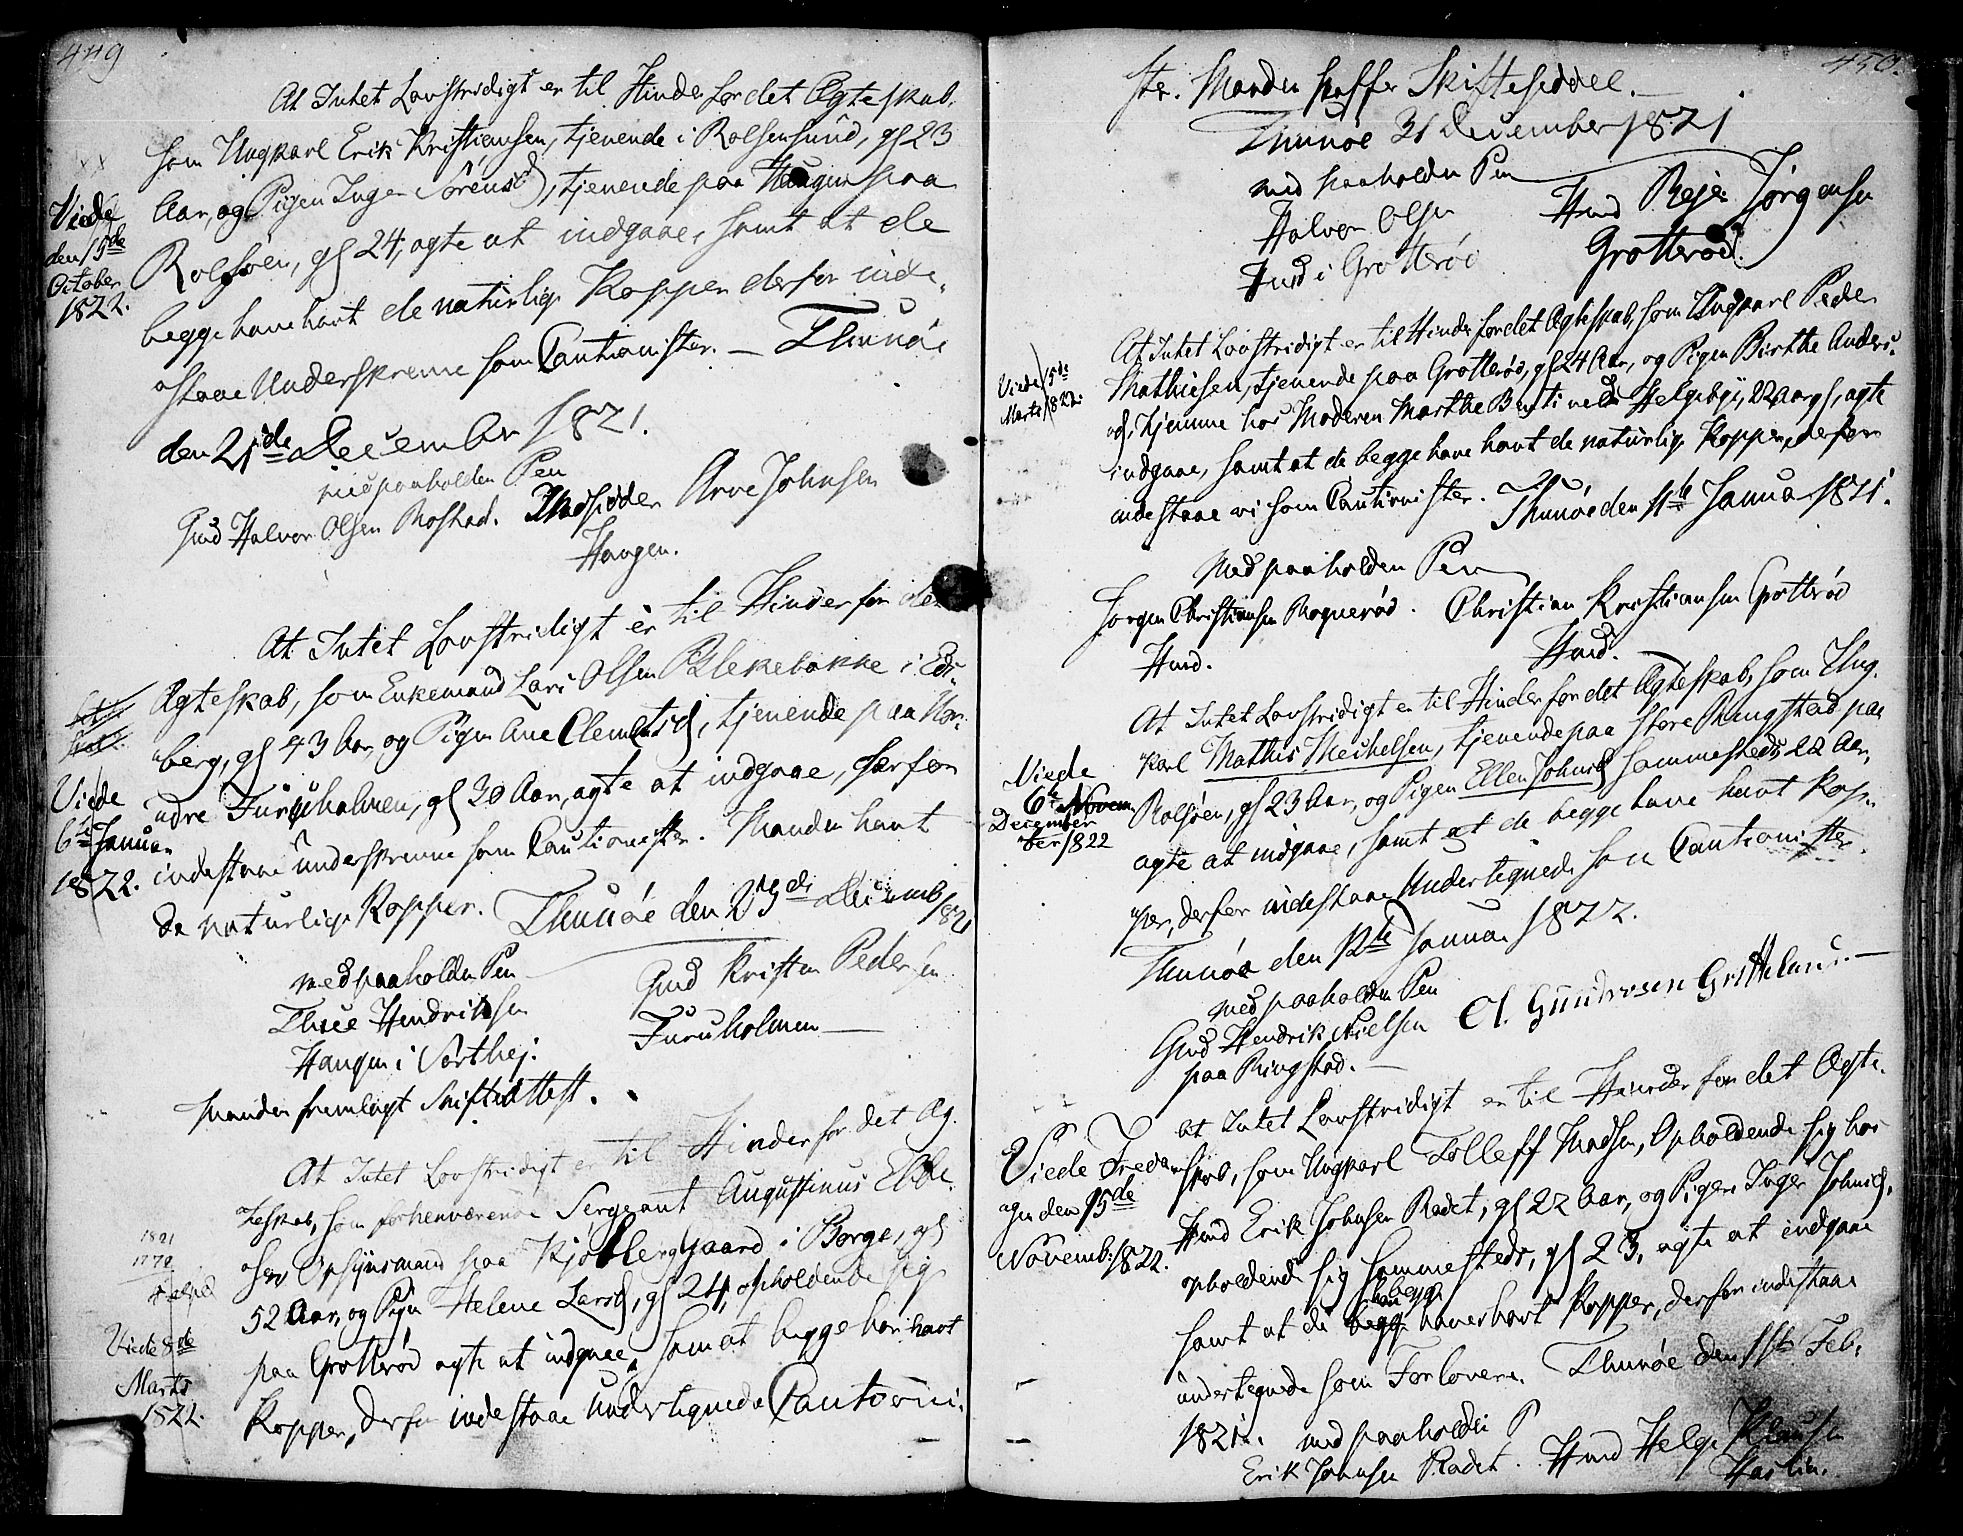 449
At Intet Lovstridigt er til Hinder for det Ægteskab,
som Ungkarl Erik Kristiansen, tjenende i Rolsøesund, gl 23
Aar, og Pigen Inger Sørensd, tjenende paa Haugen paa
Rolsøen, gl 24, agte at indgaae, samt at de
begge have havt de naturlige Kopper derfor inde-
staae Underskrevne som Cautionister. — Thunøe
den 21de December 1821.
med paaholden Pen
Gmd Halvor Olsen Rostad. Huusfader Arne Johnsen
Haugen.
Viede
den 15de
October
1822.
At Intet Lovstridigt er til Hinder for det
Ægteskab, som Enkemand Lars Olsen Blekebakke i Ids-
berg, gl 43 Aar, og Pigen Ane Clemetsd, tjenende paa Nor-
dre Furuholmen, gl 30 Aar, agte at indgaae, derfor
indestaae underskrevne som Cautionister. Manden havt
de naturlige Kopper. Thunøe den 23de Decemb 1821
med paaholden Pen
Three Hendriksen
Haugen i Sørthej.
Gmd Kristen Pedersen
Furuholmen —
Manden fremlagt Skifteattest.
Viede
6te Januar
1822.
At Intet Lovstridigt er til Hinder for det Æg-
teskab, som forhenværende Sergeant Augustinus Ebbe-
sen Opsynsmand paa Kjølberggaard i Borge, gl
52 Aar, og Pigen Helene Larsd, gl 24, opholdende sig
paa Grotterød agte at indgaae, som at begge har havt
Kopper, derfor indestaae Undertegnede Cautioni-
1821
1770
Viede 8de
Marts
1822.
450.
ster. Manden skaffer Skifteseddel. —
Thunøe 31 December 1821
med paaholden Pen
Halvor Olsen
Huusmd i Grotterød
Huusmd Rejer Jørgensen
Grotterød.
At Intet Lovstridigt er til Hinder for det Ægteskab, som Ungkarl Peder
Mathiesen, tjenende paa Grotterød, gl 24 Aar, og Pigen Birthe Anders-
d, hjemme hos Moderen Marthe Bentsd ved Helgeby, 22 aar gl, agte
indgaae, samt at de begge have havt de naturlige Kopper, derfor
indestaae vi som Cautionister. Thunøe den 11te Januar 1821.
Med paaholden Pen
Jørgen Christiansen Rognerød. Christian Kristiansen Grotterød
Huusmd. Huusmd.
Viede 15de
Marts 1822.
At Intet Lovstridigt er til Hinder for det Ægteskab, som Ung-
karl Mathis Mechelsen, tjenende paa Store Ringstad paa
Rolsøen, gl 23 Aar, og Pigen Ellen Johnsd sammesteds 22 Aar,
agte at indgaae, samt at de begge have havt Kop-
per, derfor indestaae Undertegnede som Cautionister.
Thunøe den 12te Januar 1822.
med paaholden Pen
Gmd Hendrik Nielsen
paa Ringstad. —
A. Gundersen Gretteland. —
Viede
6te Novem
December
ber 1822
At Intet Lovstridigt er til Hinder for det Ægte-
skab, som Ungkarl Tolleff Madsen, Opholdende sig hos
Huusmd Erik Johnsen Rødet, gl 22 Aar, og Pigen Inger Johnsd,
opholdende sig sammesteds, gl 23, agte at indgaae
samt at de begge haver havt Kopper, derfor indestaae
undertegnede som Forlovere. Thunøe den 11te Feb.
1821. med paaholden P
Erik Johnsen Rødet. Huusmd Helge Klausen
Haslien.
Viede Freda-
gen den 15de
Novemb: 1822.